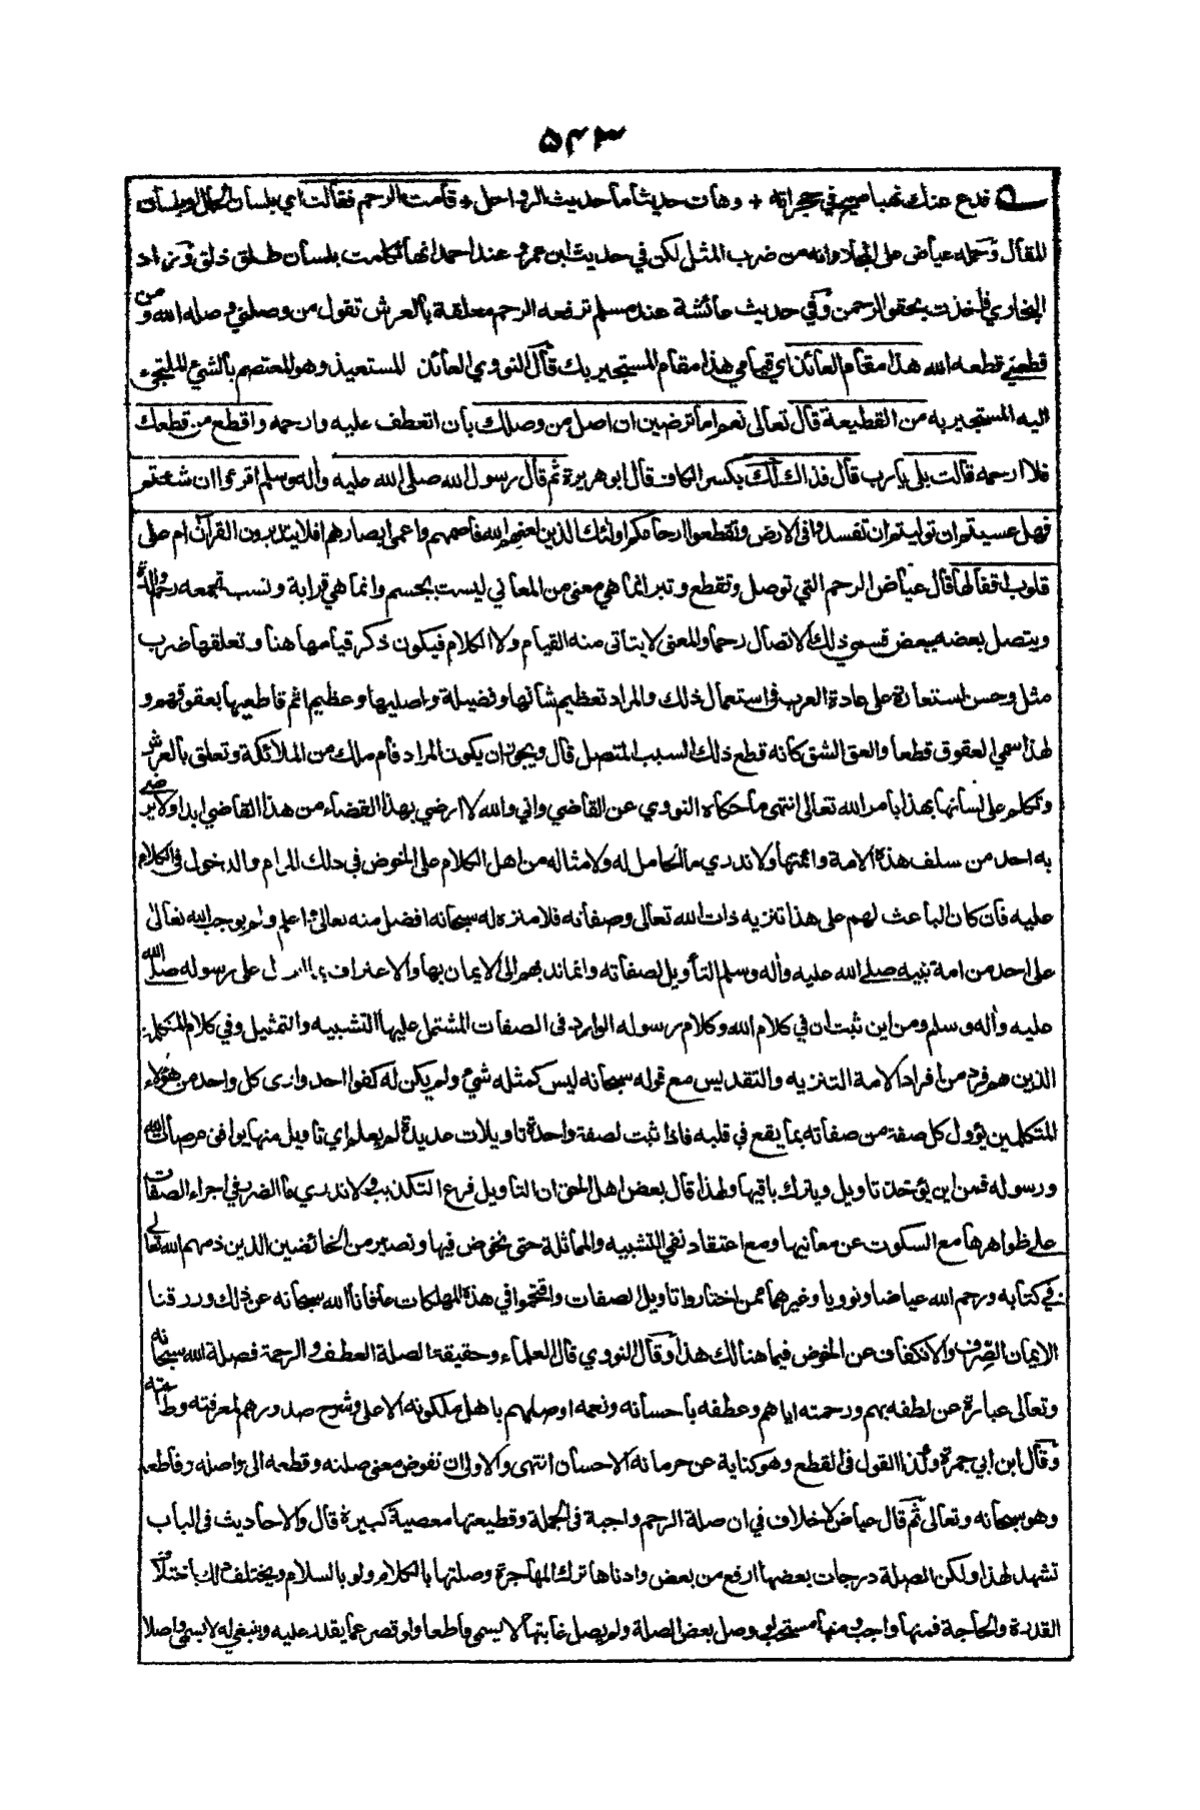 ٥٤٣
فدع عنك نهبا صيح في حجراته + وهات حديثا ما حديث الرواحل + قامت الرحم فقالت اي بلسان الحال او بلسان
المقال وحمله عياض على المجاز وانه من ضرب المثل لكن في حديث ابن عمرو عند احمد انها تكلمت بلسان طلق ذلق وزاد
البخاري فاخذت بحقو الرحمن وفي حديث عائشة عند مسلم ترفعه الرحم معلقة بالعرش تقول من وصلني وصله الله ومن
قطعني قطعه الله هذا مقام العائذ اي قيامي هذا مقام المستجير بك قال النووي العائذ المستعيذ وهو المعتصم بالشيء الملتجىء
اليه المستجير به من القطيعة قال تعالى نعم اما ترضين ان اصل من وصلك بان اتعطف عليه وارحمه واقطع من قطعك
فلا ارحمه قالت بلى يا رب قال فذاك لك بكسر الكاف قال ابو هريرة ثم قال رسول الله صلى الله عليه واله وسلم اقرءوا ان شئتم
فهل عسيتم ان توليتم ان تفسدوا في الارض وتقطعوا ارحامكم اولئك الذين لعنهم الله فاصمهم واعمى ابصارهم افلا يتدبرون القرآن ام على
قلوب اقفالها قال عياض الرحم التي توصل وتقطع وتبر انما هي معنى من المعاني ليست بجسم وانما هي قرابة ونسب تجمعه رحم والدة
ويتصل بعضه ببعض فسمي ذلك الاتصال رحما والمعنى لا يتاتى منه القيام ولا الكلام فيكون ذكر قيامها هنا وتعلقها ضرب
مثل وحسن استعارة على عادة العرب في استعمال ذلك والمراد تعظيم شانها وفضيلة واصليها وعظيم اثم قاطعيها بعقوقهم و
لهذا سمي العقوق قطعا والعق الشق كانه قطع ذلك السبب المتصل قال ويجوز ان يكون المراد قام ملك من الملائكة وتعلق بالعرش
وتكلم على لسانها بهذا بامر الله تعالى انتهى ما حكاه النووي عن القاضي واني والله لا ارضي بهذا القضاء من هذا القاضي ابدا ولا يرضى
به احد من سلف هذه الامة وائمتها ولا ندري ما الحامل له ولامثاله من اهل الكلام على الخوض في ذلك المرام والدخول في الكلام
عليه فان كان الباعث لهم على هذا تنزيه ذات الله تعالى وصفاته فلا منزه له سبحانه افضل منه تعالى واعلم ولم يوجب الله تعالى
على احد من امة نبيه صلى الله عليه واله وسلم التأويل لصفاته وانما ندبهم الى الايمان بها والاعتراف على رسوله صلى الله
عليه واله وسلم ومن اين ثبت ان في كلام الله وكلام رسوله الوارد في الصفات المشتمل عليها التشبيه والتمثيل وفي كلام المتكلمين
الذين هم فرد من افراد الامة التنزيه والتقديس مع قوله سبحانه ليس كمثله شيء ولم يكن له كفوا احد وارى كل واحد من هؤلاء
المتكلمين يؤول كل صفة من صفاته بما يقع في قلبه فاذا ثبت لصفة واحدة تاويلات عديدة لم يعلم اي تاويل منها يوافق مرضات الله
ورسوله فمن اين يؤخذ تاويل ويترك باقيها ولهذا قال بعض اهل الحق ان التاويل فرع التكذيب ولا ندري ما الضرر في اجراء الصفات
على ظواهرها مع السكوت عن معانيها ومع اعتقاد نفي التشبيه والمماثلة حتى نخوض فيها ونصير من الخائضين الذين ذمهم الله تعالى
في كتابه ورحم الله عياضا ونوويا وغيرهما ممن اختاروا تاويل الصفات واقتحموا في هذه المهلكات عافانا الله سبحانه عن ذلك ورزقنا
الايمان الصرف والانكفاف عن الخوض فيما هنالك هذا وقال النووي قال العلماء وحقيقة الصلة العطف والرحمة فصلة الله سبحانه
وتعالى عبارة عن لطفه بهم ورحمته اياهم وعطفه باحسانه ونعمه او صلتهم باهل ملكوته الاعلى وشرح صدورهم لمعرفته وطاعته
وقال ابن ابي جمرة وكذا القول في القطع وهو كناية عن حرمانه الاحسان انتهى والاولى ان نفوض معنى صلته وقطعه الى واصله وقاطعه
وهو سبحانه وتعالى ثم قال عياض لا خلاف في ان صلة الرحم واجبة في الجملة وقطيعتها معصية كبيرة قال والاحاديث في الباب
تشهد لهذا ولكن الصلة درجات بعضها ارفع من بعض وادناها ترك المهاجرة وصلتها بالكلام ولو بالسلام ويختلف ذلك باختلاف
القدرة والحاجة فمنها واجب ومنها مستحب لو وصل بعض الصلة ولم يصل غايتها لا يسمى قاطعا ولو قصر عما يقدر عليه وينبغي له لا يسمى واصلا